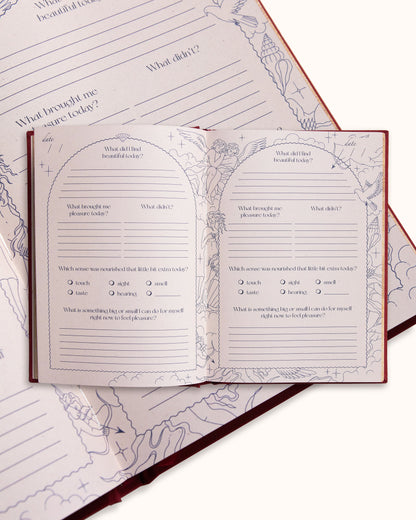 What did I find
beautiful today?
What didn't?
What brought me
pleasure today?
date
What did I find
beautiful today?
What brought me
pleasure today?
What didn't?
Which sense was nourished that little bit extra today?
touch
sight
smell
taste
hearing
What is something big or small I can do for myself
right now to feel pleasure?
What did I find
beautiful today?
date
What brought me
pleasure today?
What didn't?
Which sense was nourished that little bit extra today?
touch
sight
smell
taste
hearing
What is something big or small I can do for myself
right now to feel pleasure?